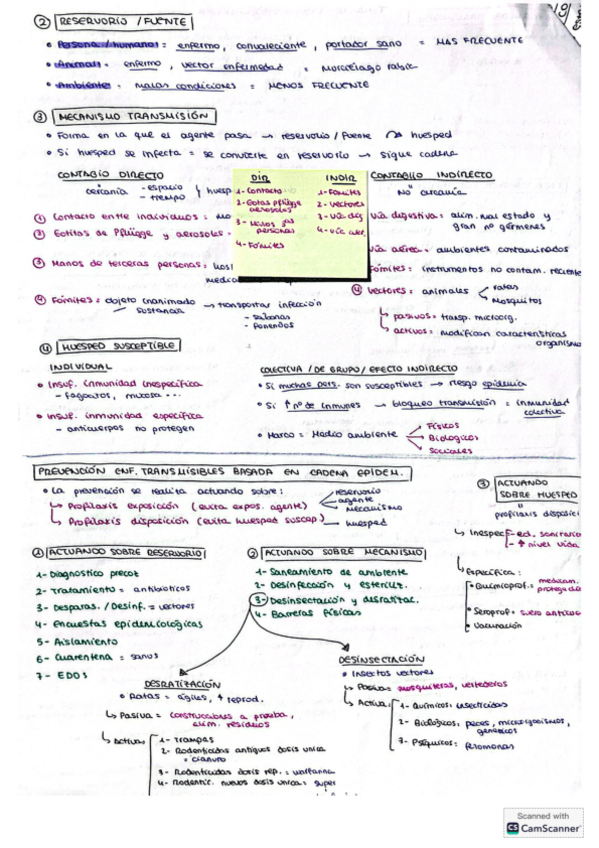 ② RESERVORIO / FUENTE
• Persona / humano: enfermo, convaleciente, portador sano = MAS FRECUENTE
• Animal: enfermo, vector enfermedad = Murcielago rabia
• Ambiente: malas condiciones = MENOS FRECUENTE
③ MECANISMO TRANSMISIÓN
• Forma en la que el agente pasa → reservorio / fuente huesped
• Si huesped se infecta = se convierte en reservorio → sigue cadena
CONTAGIO DIRECTO
cercanía - espacio
- tiempo
huesp
① Contacto entre individuos:
② Gotitas de Pflügge y aerosoles =
③ Manos de terceras personas:
④ Fómites = objeto inanimado → transportar infección
sustancia
- sabanas
DIR
1- Contacto
2- Gotas pflügge
aerosoles
3- Manos 3as
personas
4- Fómites
INDIR
1- Fómites
2- Vectores
3- Vía dig
4- Vía aer.
CONTAGIO INDIRECTO
NO cercanía
Vía digestiva: alim. mal estado y
gran nº gérmenes
Vía aérea: ambientes contaminados
Fómites: instrumentos no contam. reciente
④ Vectores: animales
ratas
Mosquitos
↳ pasivos: transp. microorg.
↳ activos: modifican características
organismo
④ HUESPED SUSCEPTIBLE
INDIVIDUAL
• Insuf. inmunidad inespecífica
- fagocitos, mucosa ...
• Insuf. inmunidad específica
- anticuerpos no protegen
COLECTIVA / DE GRUPO / EFECTO INDIRECTO
• Si muchas pers. son susceptibles → riesgo epidemia
• Si ↑ nº de inmunes → bloqueo transmisión = inmunidad
colectiva
• Marco = Medio ambiente
Físicos
Biologicos
Sociales
PREVENCIÓN ENF. TRANSMISIBLES BASADA EN CADENA EPIDEM.
• La prevención se realiza actuando sobre:
reservorio
agente
mecanismo
↳ Profilaxis exposición (evita expos. agente)
↳ Profilaxis disposición (evita huesped suscep.) → huesped
① ACTUANDO SOBRE RESERVORIO
1- Diagnostico precoz
2- Tratamiento = antibioticos
3- Desparas. / Desinf. = vectores
4- Encuestas epidemiológicas
5- Aislamiento
6- Cuarentena = sanos
7- EDOS
② ACTUANDO SOBRE MECANISMO
1- Saneamiento de ambiente
2- Desinfección y esteriliz.
3- Desinsectación y desratizac.
4- Barreras físicas
③ ACTUANDO
SOBRE HUESPED
profilaxis disposici
↳ Inespec
- ed. sanitaria
- ↑ nivel vida
↳ Específica:
• Quimioprof.: medicam.
protegida
• Seroprof: suero anticos
• Vacunación
DESRATIZACIÓN
• Ratas = ágiles, ↑ reprod.
↳ Pasiva = construcciones a prueba,
elim. residuos
↳ Activa
1- Trampas
2- Rodenticidas antiguos dosis unica
= cianuro
3- Rodenticidas dosis rep. = warfarina
4- Rodentic. nuevos dosis unica = super
DESINSECTACIÓN
• Insectos vectores
↳ Pasiva: mosquiteras, vertederos
↳ Activa:
1- Químicos: insecticidas
2- Biológicos: peces, microorganismos,
geneticos
3- Psíquicos: feromonas
Scanned with
CS CamScanner